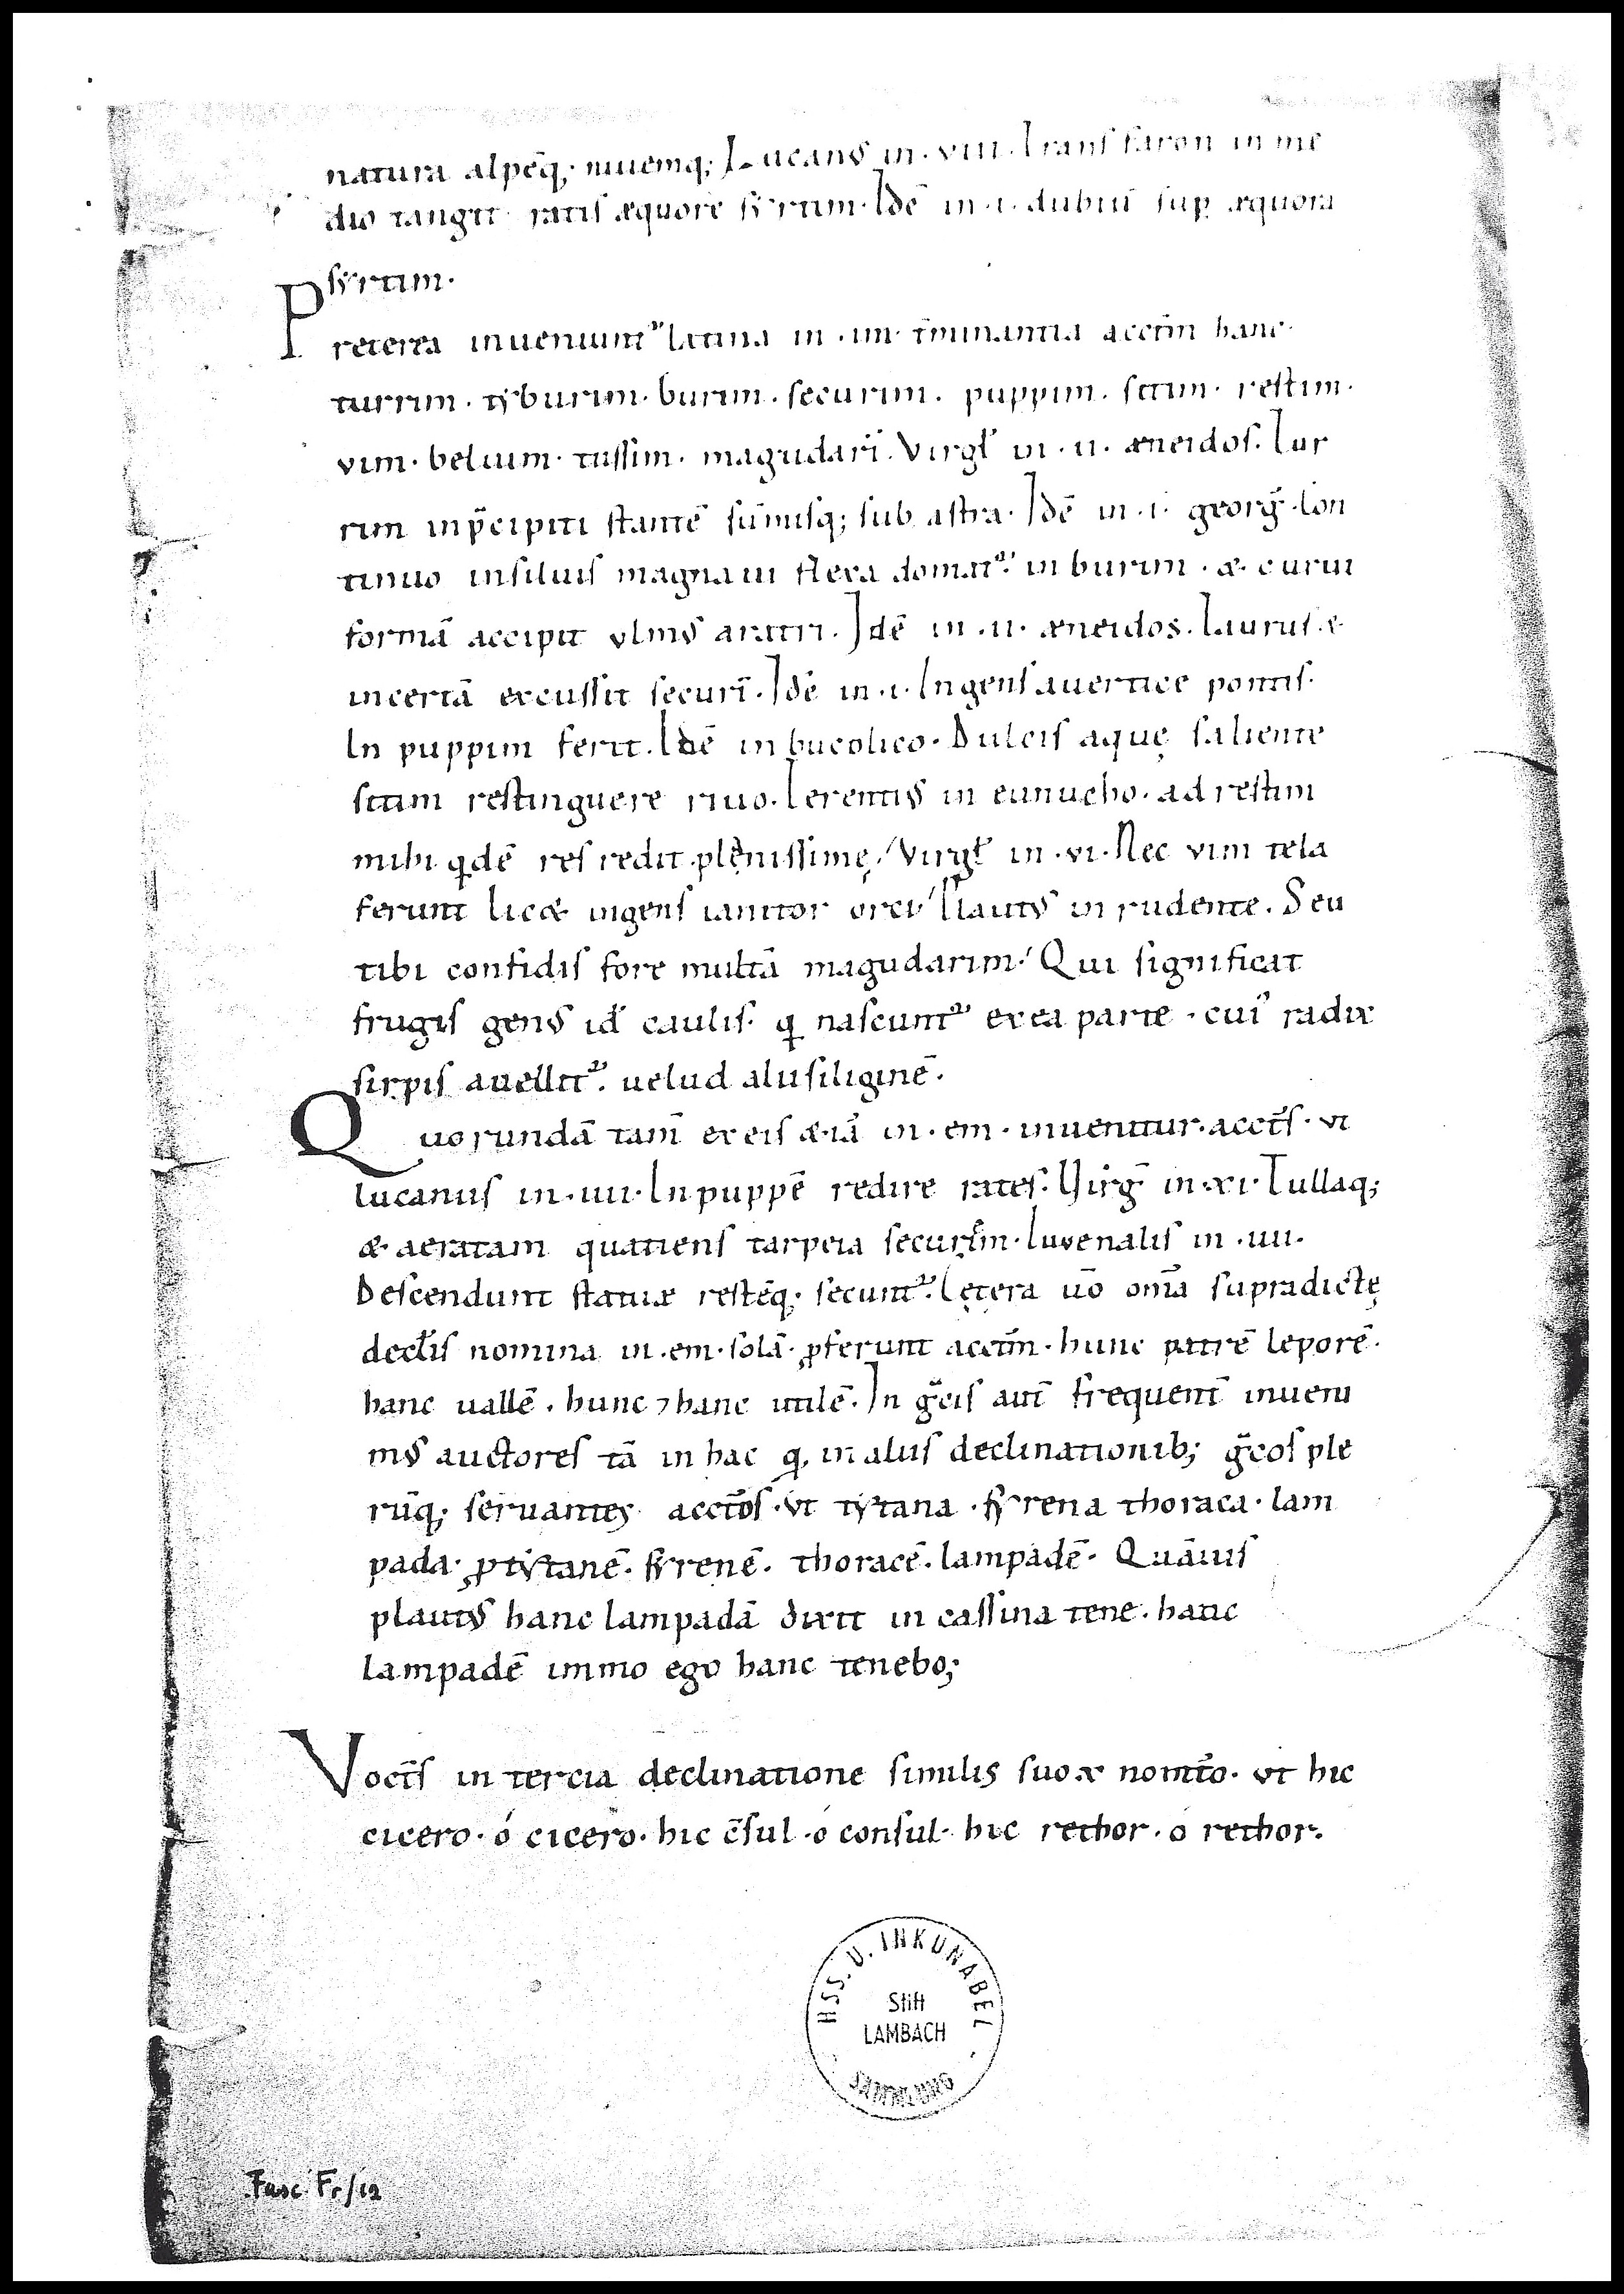 natura alpeq; niuemq; Lucanꝰ in · viii · Trans faron in me
dio tangit ratis æquore syrtim · Idē in · i · dubiū sup æquora
syrtim ·
Preterea inueniunt᷑ latina in · im · t̄minantia acctm̄ hanc ·
turrim · tyburim · burim · securim · puppim · sitim · restim ·
vim · beluim · tussim · magudarī · Virgł in · ii · æneidos · Tur
rim inp̄cipiti stantē sūmisq; sub astra · Idē in · i · georḡ · Con
tinuo insiluis magna ui flexa domat᷑ · in burim · & curui
formā accipit vlmꝰ aratri · Idē in · ii · æneidos · Taurus &
incertā excussit securī · Idē in · i · Ingens auertice pontis ·
In puppim ferit · Idē in bucolico · Dulcis aquę saliente
sitim restinguere riuo · Terentiꝰ in eunucho · ad restim
mihi qdē res redit plenissimę / Virgł in · vi · Nec vim tela
ferunt lic& ingens ianitor orci / Plautꝰ in rudente · Seu
tibi confidis fore multā magudarim · Qui significat
frugis genꝰ id caulis · q nascunt᷑ exea parte · cuiꝰ radix
sirpis auellit᷑ · uelud alii siliginē ·
Quorundā tam̄ exeis &iā in · em · inuenitur · accts̄ · vt
lucanus in · iiii · In puppē redire rates · Virḡ in · xi · Tullaq;
& aeratam quatiens tarpeia securim · Iuvenalis in · iiii ·
Descendunt statuæ restēq; secunt᷑ · Cętera uō om̄a supradictę
declis nomina in · em · solā · ꝓferunt acctm̄ · hunc patrē leporē ·
hanc uallē · hunc ⁊ hanc utilē · In grecis aut̄ frequent̄ inueni
mꝰ auctores tā in hac q̄ in aliis declinationib; grecos ple
rūq; seruantes acctōs · vt tytana · syrena thoraca · lam
pada · ꝓ tytanē · syrenē · thoracē · lampadē · Quāuis
plautꝰ hanc lampadā dixit in cassina tene · hanc
lampadē immo ego hanc tenebo;
Voct̄s in tercia declinatione similis suo & nomt̄o · vt hic
cicero · ó cicero · hic c̄sul · o consul · hic rethor · o rethor ·
HSS. U. INKUNABEL
Stift
LAMBACH
SAMMLUNG
Fasc Fr/12